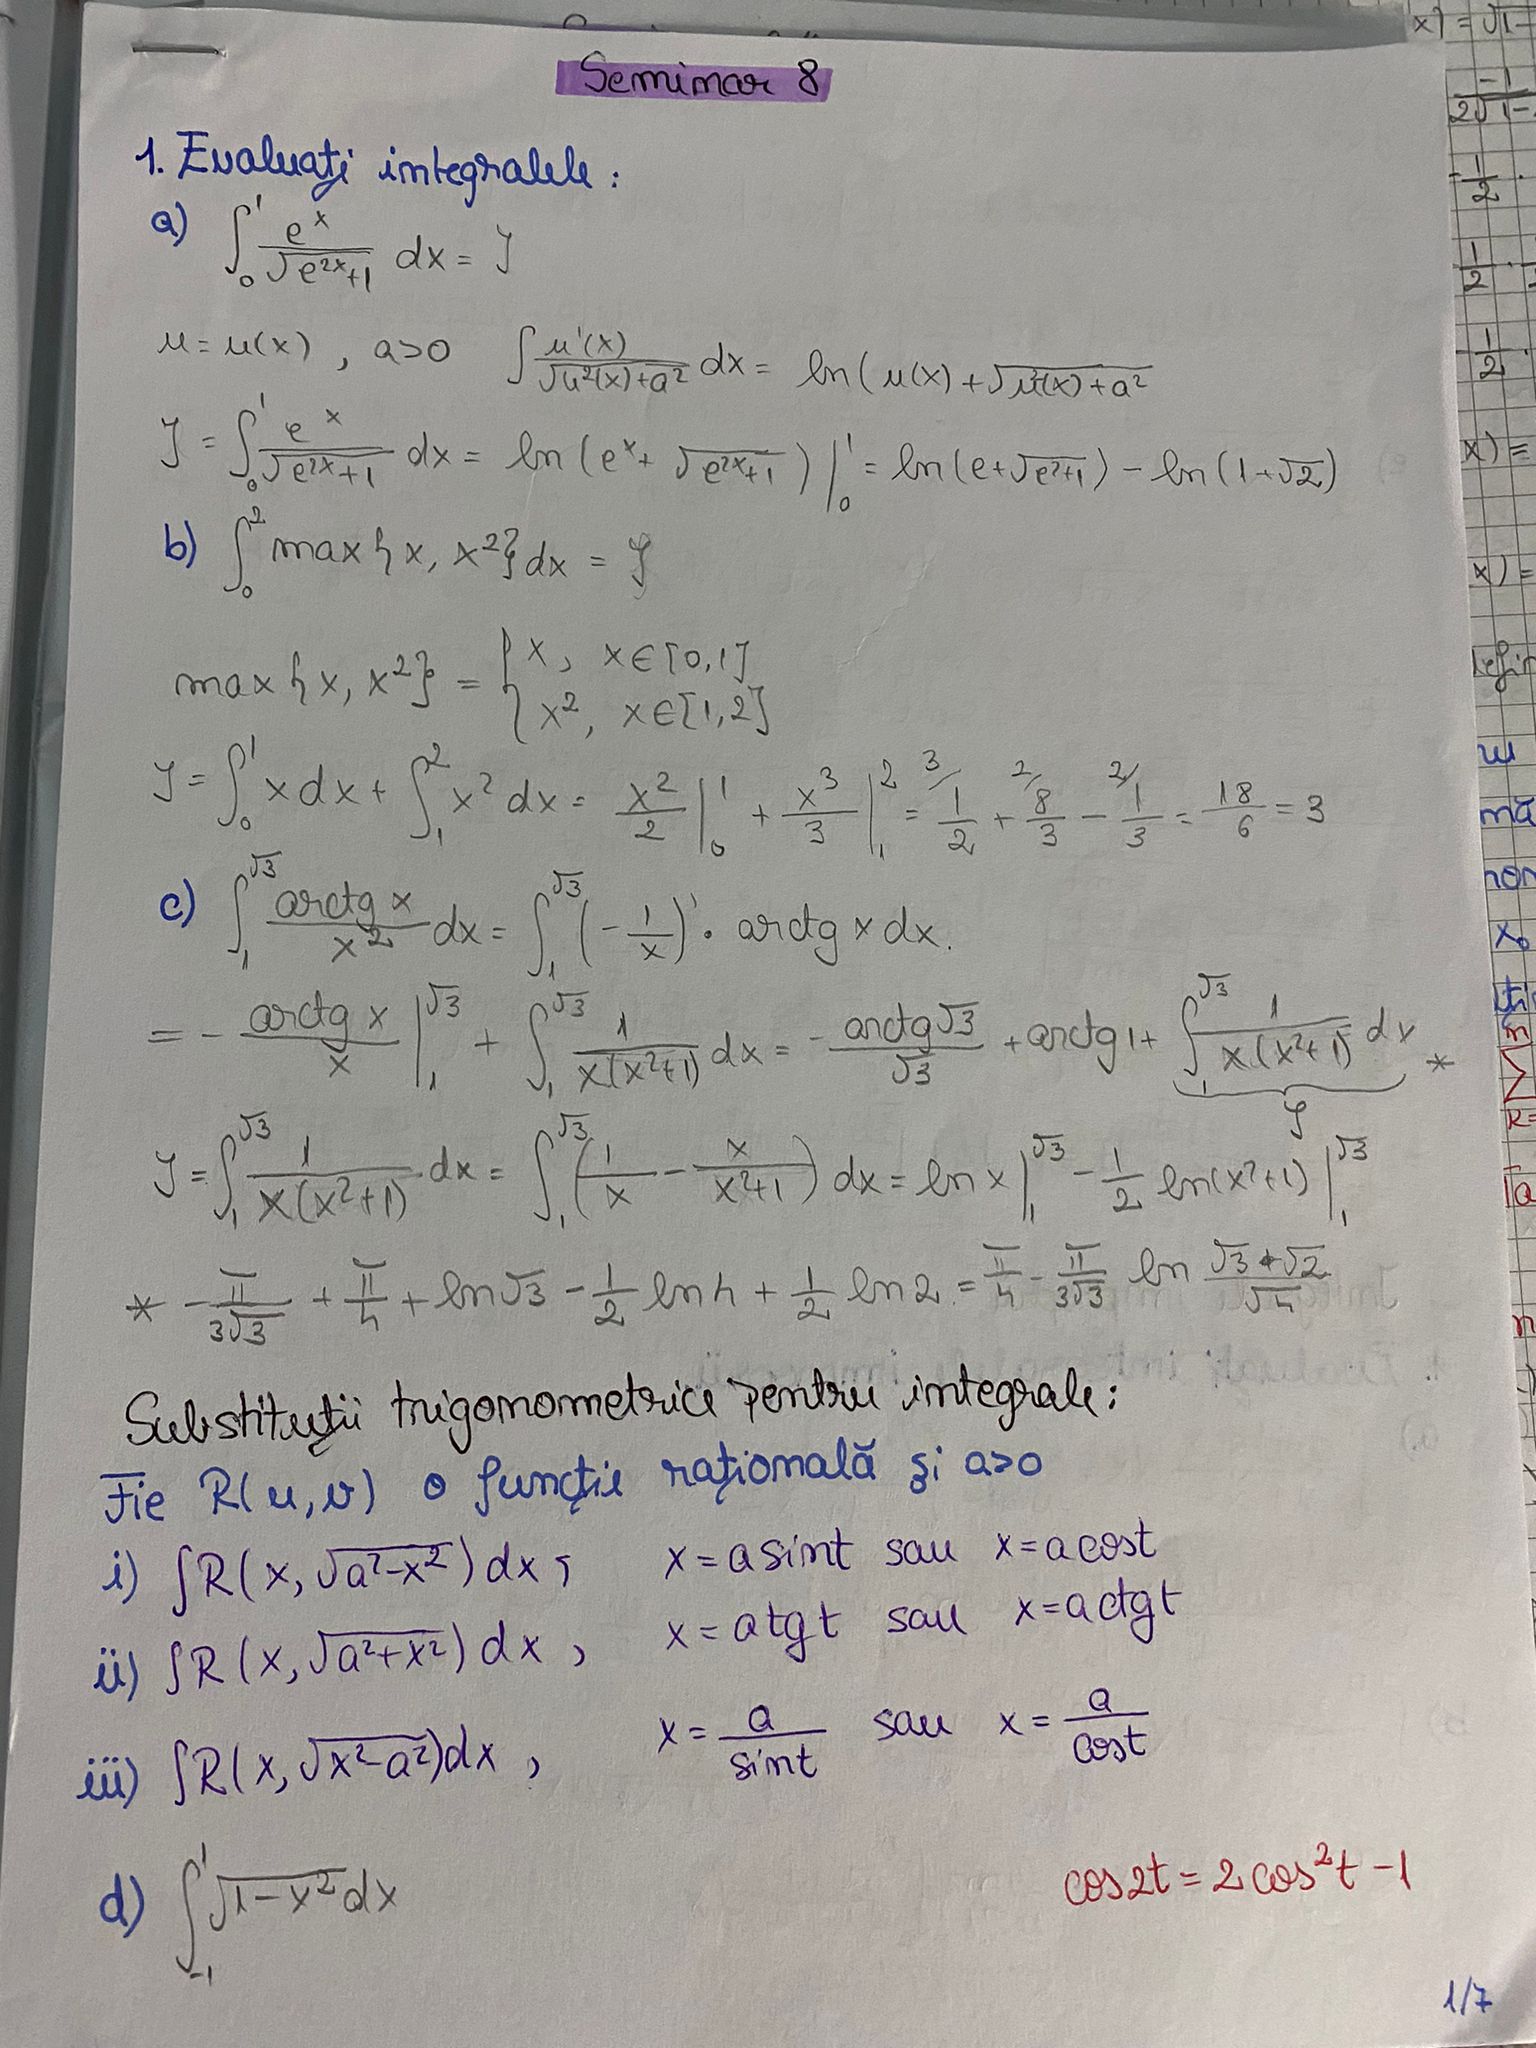 Seminar 8
1. Evaluați integralele:
a) ∫₀¹ eˣ/√(e²ˣ+1) dx = J
u = u(x) , a>0 ∫ u'(x)/√(u²(x)+a²) dx = ln(u(x)+√(u²(x)+a²)
J = ∫₀¹ eˣ/√(e²ˣ+1) dx = ln(eˣ+√(e²ˣ+1))|₀¹ = ln(e+√(e²+1)) - ln(1+√2)
b) ∫₀² max{x, x²}dx = J
max{x, x²} = { x, x∈[0,1]
{ x², x∈[1,2]
J = ∫₀¹ x dx + ∫₁² x² dx = x²/2 |₀¹ + x³/3 |₁² = ³⁾1/2 + ²⁾8/3 - ²⁾1/3 = 18/6 = 3
c) ∫₁^√3 arctg x/x² dx = ∫₁^√3 (-1/x)' · arctg x dx.
= - arctg x/x |₁^√3 + ∫₁^√3 1/(x(x²+1)) dx = - arctg√3/√3 + arctg 1 + ∫₁^√3 1/(x(x²+1)) dx *
J
J = ∫₁^√3 1/(x(x²+1)) dx = ∫₁^√3 (1/x - x/(x²+1)) dx = ln x |₁^√3 - 1/2 ln(x²+1) |₁^√3
* -π/(3√3) + π/4 + ln√3 - 1/2 ln 4 + 1/2 ln 2 = π/4 - π/(3√3) ln (√3·√2)/√4
Substituții trigonometrice pentru integrale:
Fie R(u,v) o funcție rațională și a>0
i) ∫R(x,√(a²-x²))dx, x = a sint sau x = a cost
ii) ∫R(x,√(a²+x²))dx, x = a tgt sau x = a ctgt
iii) ∫R(x,√(x²-a²))dx, x = a/sint sau x = a/cost
d) ∫₋₁¹ √(1-x²) dx
cos2t = 2cos²t - 1
1/7